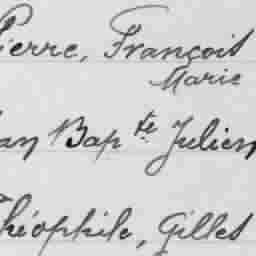 Pierre, François
Marie
Jean Bapte Julien
Théophile, Gilles